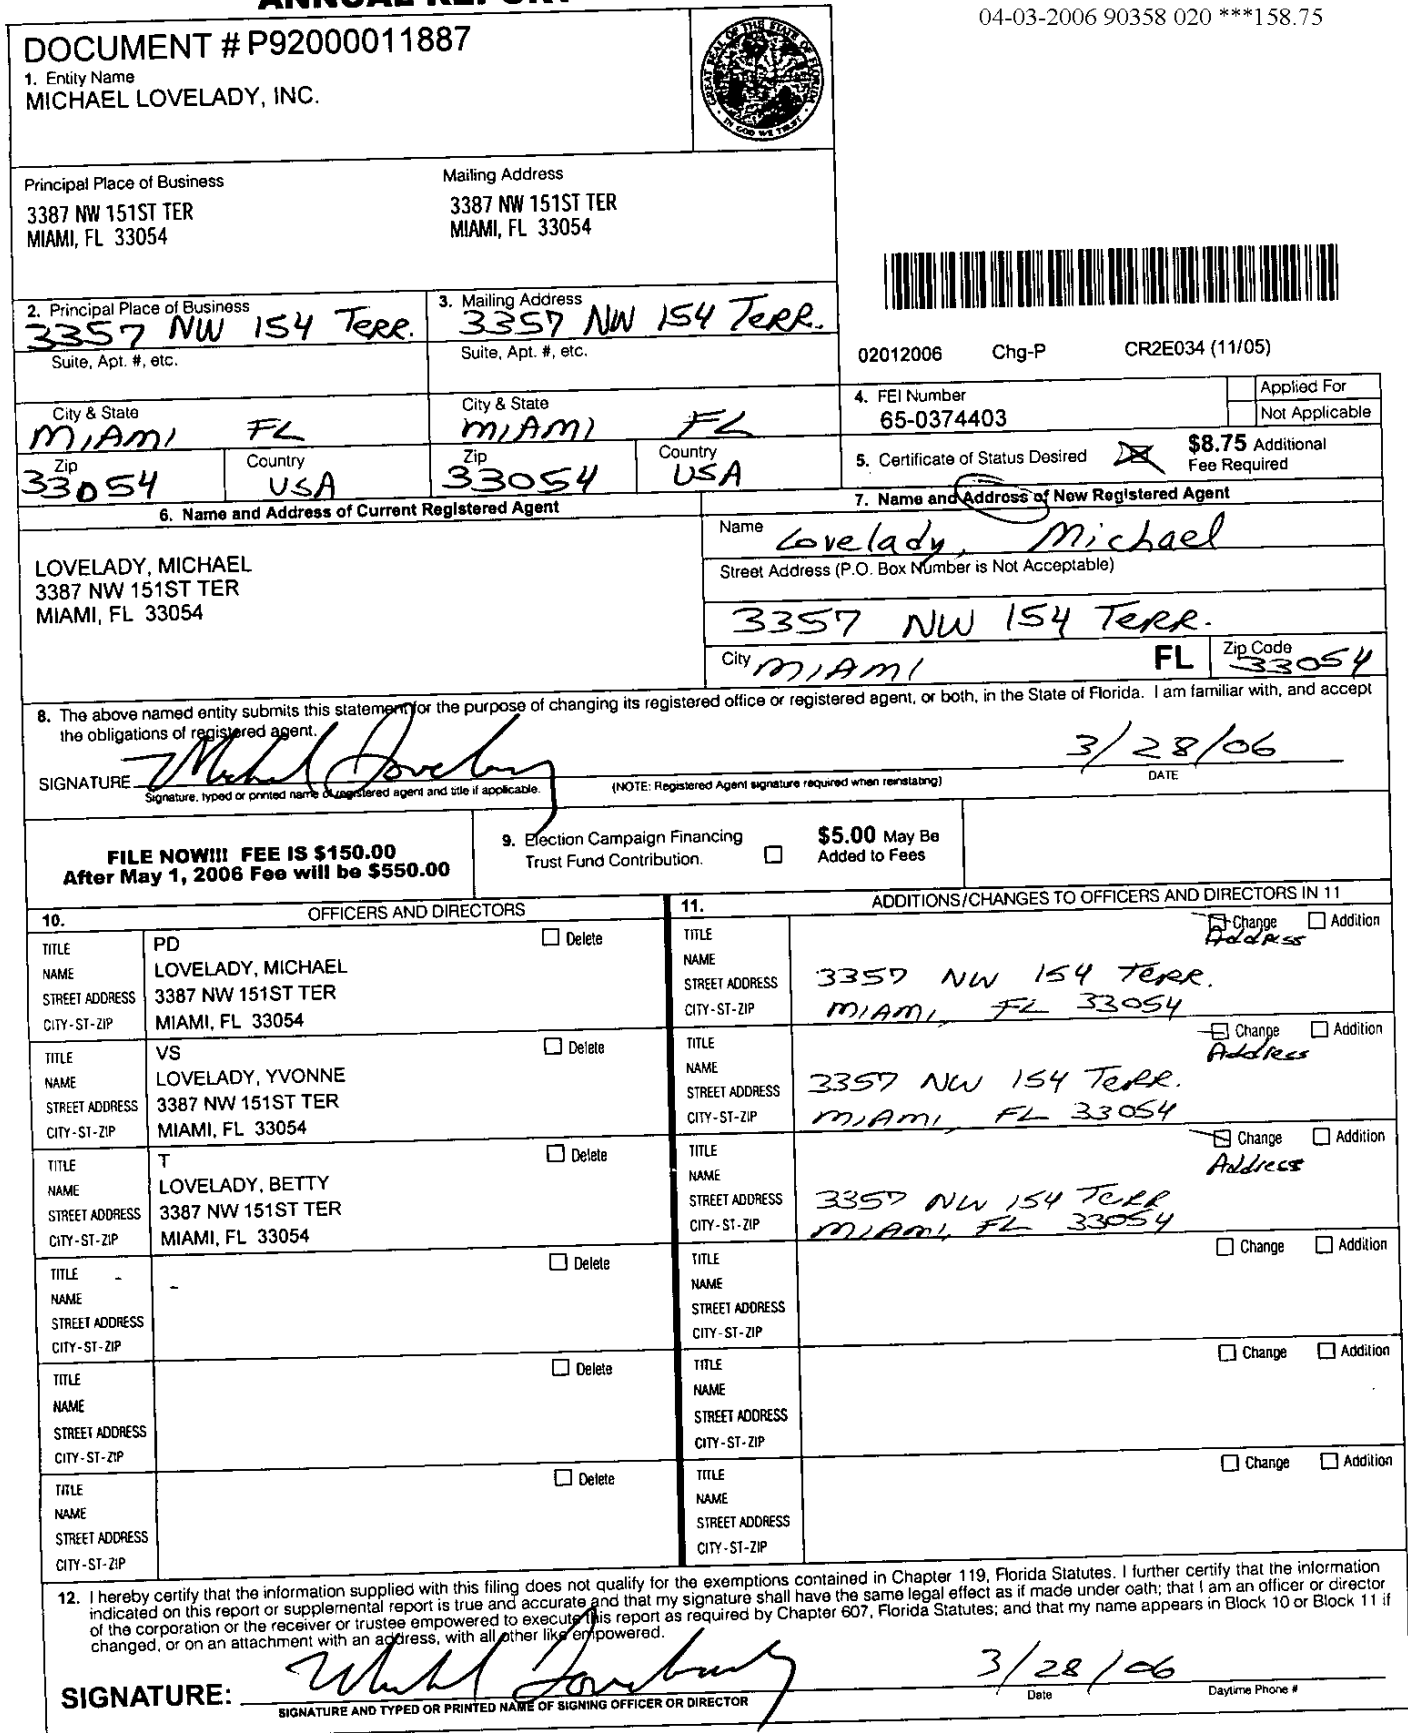 ANNUAL REPORT
04-03-2006 90358 020 ***158.75
DOCUMENT # P92000011887
1. Entity Name
MICHAEL LOVELADY, INC.
GREAT SEAL OF THE STATE OF FLORIDA
IN GOD WE TRUST
Principal Place of Business
3387 NW 151ST TER
MIAMI, FL 33054
Mailing Address
3387 NW 151ST TER
MIAMI, FL 33054
2. Principal Place of Business
3357 NW 154 Terr.
Suite, Apt. #, etc.
City & State
MIAMI FL
Zip
33054
Country
USA
3. Mailing Address
3357 NW 154 Terr.
Suite, Apt. #, etc.
City & State
MIAMI FL
Zip
33054
Country
USA
02012006 Chg-P CR2E034 (11/05)
4. FEI Number
65-0374403
Applied For
Not Applicable
5. Certificate of Status Desired
$8.75 Additional
Fee Required
6. Name and Address of Current Registered Agent
LOVELADY, MICHAEL
3387 NW 151ST TER
MIAMI, FL 33054
7. Name and Address of New Registered Agent
Name Lovelady, Michael
Street Address (P.O. Box Number is Not Acceptable)
3357 NW 154 Terr.
City MIAMI FL Zip Code 33054
8. The above named entity submits this statement for the purpose of changing its registered office or registered agent, or both, in the State of Florida. I am familiar with, and accept
the obligations of registered agent.
SIGNATURE Michael Lovelady 3/28/06
Signature, typed or printed name of registered agent and title if applicable. (NOTE: Registered Agent signature required when reinstating) DATE
FILE NOW!!! FEE IS $150.00
After May 1, 2006 Fee will be $550.00
9. Election Campaign Financing
Trust Fund Contribution.
$5.00 May Be
Added to Fees
10. OFFICERS AND DIRECTORS
11. ADDITIONS/CHANGES TO OFFICERS AND DIRECTORS IN 11
TITLE PD Delete
NAME LOVELADY, MICHAEL
STREET ADDRESS 3387 NW 151ST TER
CITY-ST-ZIP MIAMI, FL 33054
TITLE Change Addition
Address
NAME
STREET ADDRESS 3357 NW 154 Terr.
CITY-ST-ZIP MIAMI, FL 33054
TITLE VS Delete
NAME LOVELADY, YVONNE
STREET ADDRESS 3387 NW 151ST TER
CITY-ST-ZIP MIAMI, FL 33054
TITLE Change Addition
Address
NAME
STREET ADDRESS 3357 NW 154 Terr.
CITY-ST-ZIP MIAMI, FL 33054
TITLE T Delete
NAME LOVELADY, BETTY
STREET ADDRESS 3387 NW 151ST TER
CITY-ST-ZIP MIAMI, FL 33054
TITLE Change Addition
Address
NAME
STREET ADDRESS 3357 NW 154 Terr
CITY-ST-ZIP MIAMI, FL 33054
TITLE Delete
NAME
STREET ADDRESS
CITY-ST-ZIP
TITLE Change Addition
NAME
STREET ADDRESS
CITY-ST-ZIP
TITLE Delete
NAME
STREET ADDRESS
CITY-ST-ZIP
TITLE Change Addition
NAME
STREET ADDRESS
CITY-ST-ZIP
TITLE Delete
NAME
STREET ADDRESS
CITY-ST-ZIP
TITLE Change Addition
NAME
STREET ADDRESS
CITY-ST-ZIP
12. I hereby certify that the information supplied with this filing does not qualify for the exemptions contained in Chapter 119, Florida Statutes. I further certify that the information
indicated on this report or supplemental report is true and accurate and that my signature shall have the same legal effect as if made under oath; that I am an officer or director
of the corporation or the receiver or trustee empowered to execute this report as required by Chapter 607, Florida Statutes; and that my name appears in Block 10 or Block 11 if
changed, or on an attachment with an address, with all other like empowered.
SIGNATURE: Michael Lovelady 3/28/06
SIGNATURE AND TYPED OR PRINTED NAME OF SIGNING OFFICER OR DIRECTOR Date Daytime Phone #